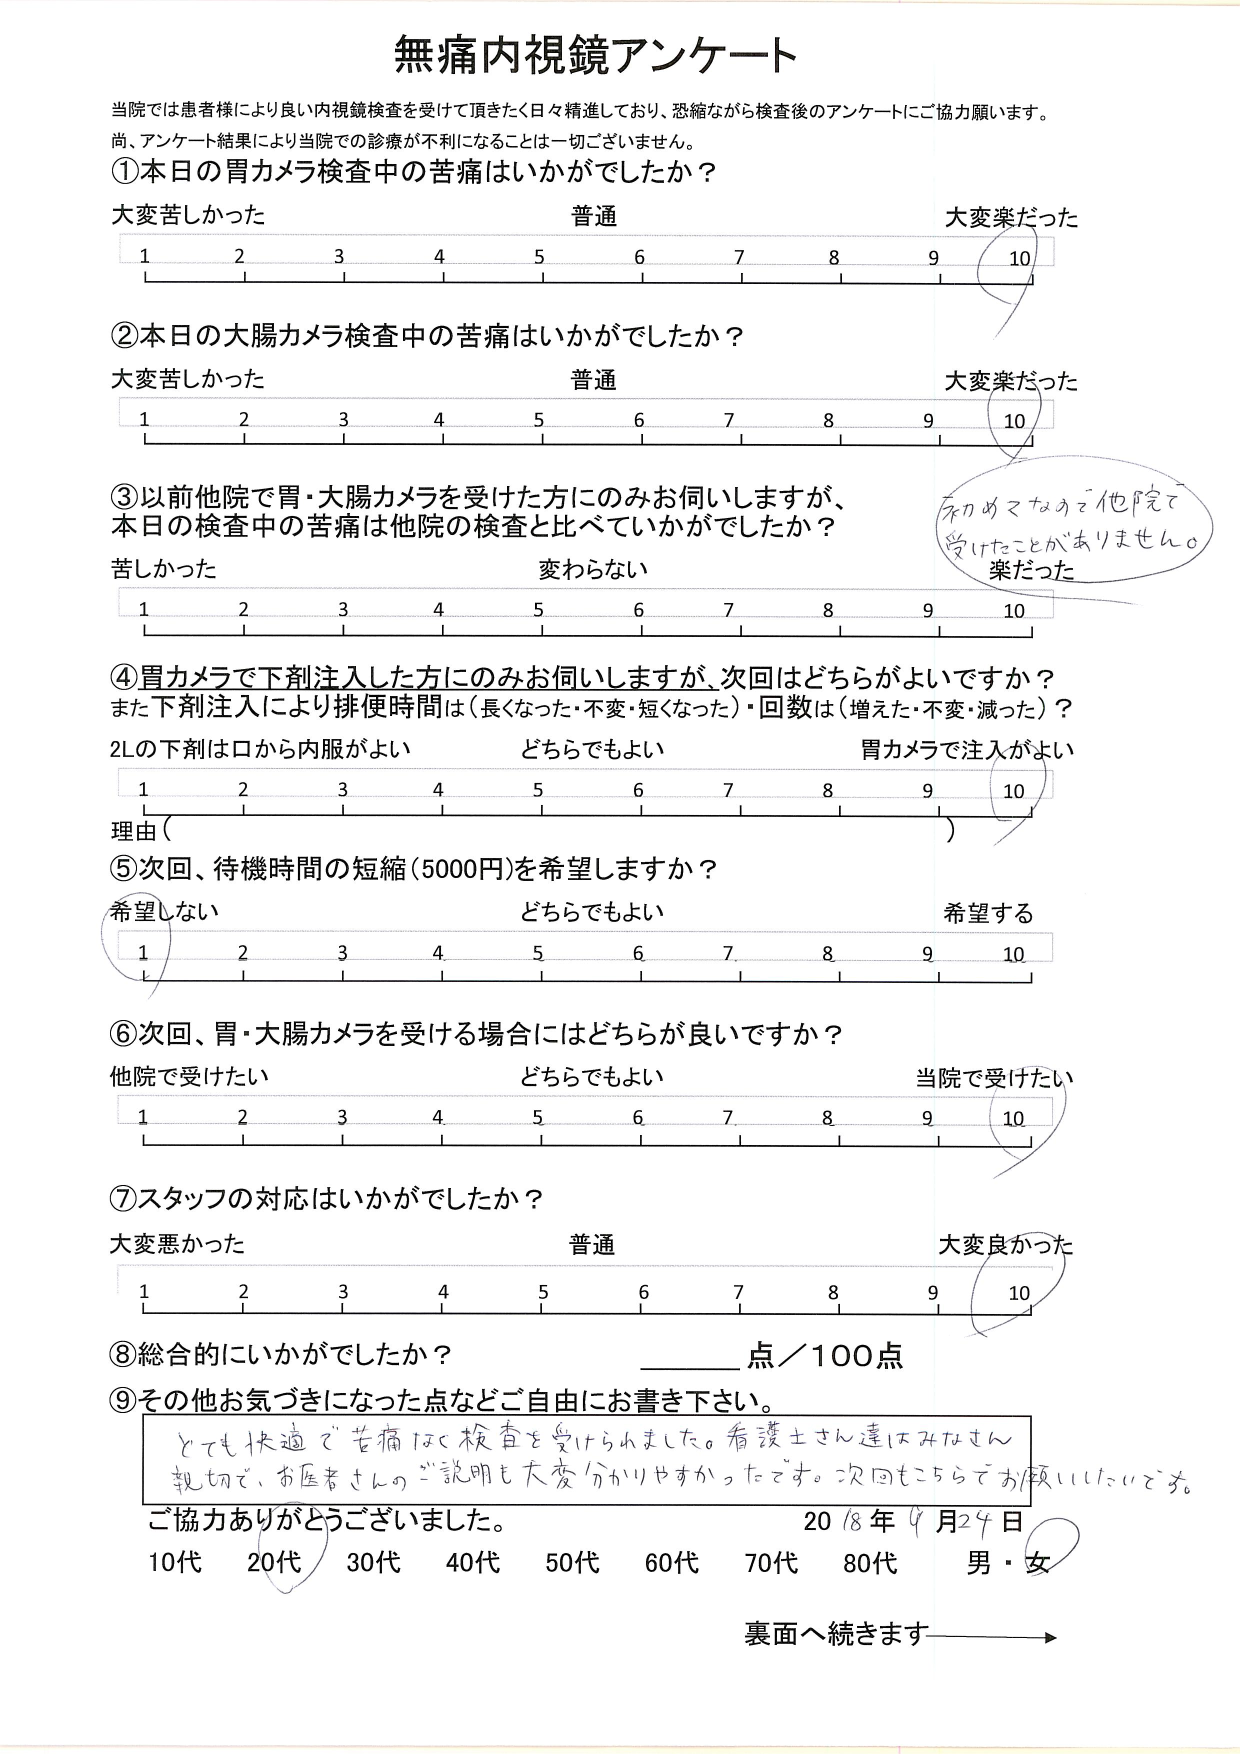 無痛内視鏡アンケート
当院では患者様により良い内視鏡検査を受けて頂きたく日々精進しており、恐縮ながら検査後のアンケートにご協力願います。
尚、アンケート結果により当院での診療が不利になることは一切ございません。
①本日の胃カメラ検査中の苦痛はいかがでしたか？
大変苦しかった 普通 大変楽だった
1 2 3 4 5 6 7 8 9 10
②本日の大腸カメラ検査中の苦痛はいかがでしたか？
大変苦しかった 普通 大変楽だった
1 2 3 4 5 6 7 8 9 10
③以前他院で胃・大腸カメラを受けた方にのみお伺いしますが、
本日の検査中の苦痛は他院の検査と比べていかがでしたか？
初めてなので他院で
受けたことがありません。
苦しかった 変わらない 楽だった
1 2 3 4 5 6 7 8 9 10
④胃カメラで下剤注入した方にのみお伺いしますが、次回はどちらがよいですか？
また下剤注入により排便時間は（長くなった・不変・短くなった）・回数は（増えた・不変・減った）？
2Lの下剤は口から内服がよい どちらでもよい 胃カメラで注入がよい
1 2 3 4 5 6 7 8 9 10
理由（ ）
⑤次回、待機時間の短縮（5000円）を希望しますか？
希望しない どちらでもよい 希望する
1 2 3 4 5 6 7 8 9 10
⑥次回、胃・大腸カメラを受ける場合にはどちらが良いですか？
他院で受けたい どちらでもよい 当院で受けたい
1 2 3 4 5 6 7 8 9 10
⑦スタッフの対応はいかがでしたか？
大変悪かった 普通 大変良かった
1 2 3 4 5 6 7 8 9 10
⑧総合的にいかがでしたか？ 点／100点
⑨その他お気づきになった点などご自由にお書き下さい。
とても快適で苦痛なく検査を受けられました。看護士さん達はみなさん
親切で、お医者さんのご説明も大変分かりやすかったです。次回もこちらでお願いしたいです。
ご協力ありがとうございました。 2018年9月24日
10代 20代 30代 40代 50代 60代 70代 80代 男・女
裏面へ続きます